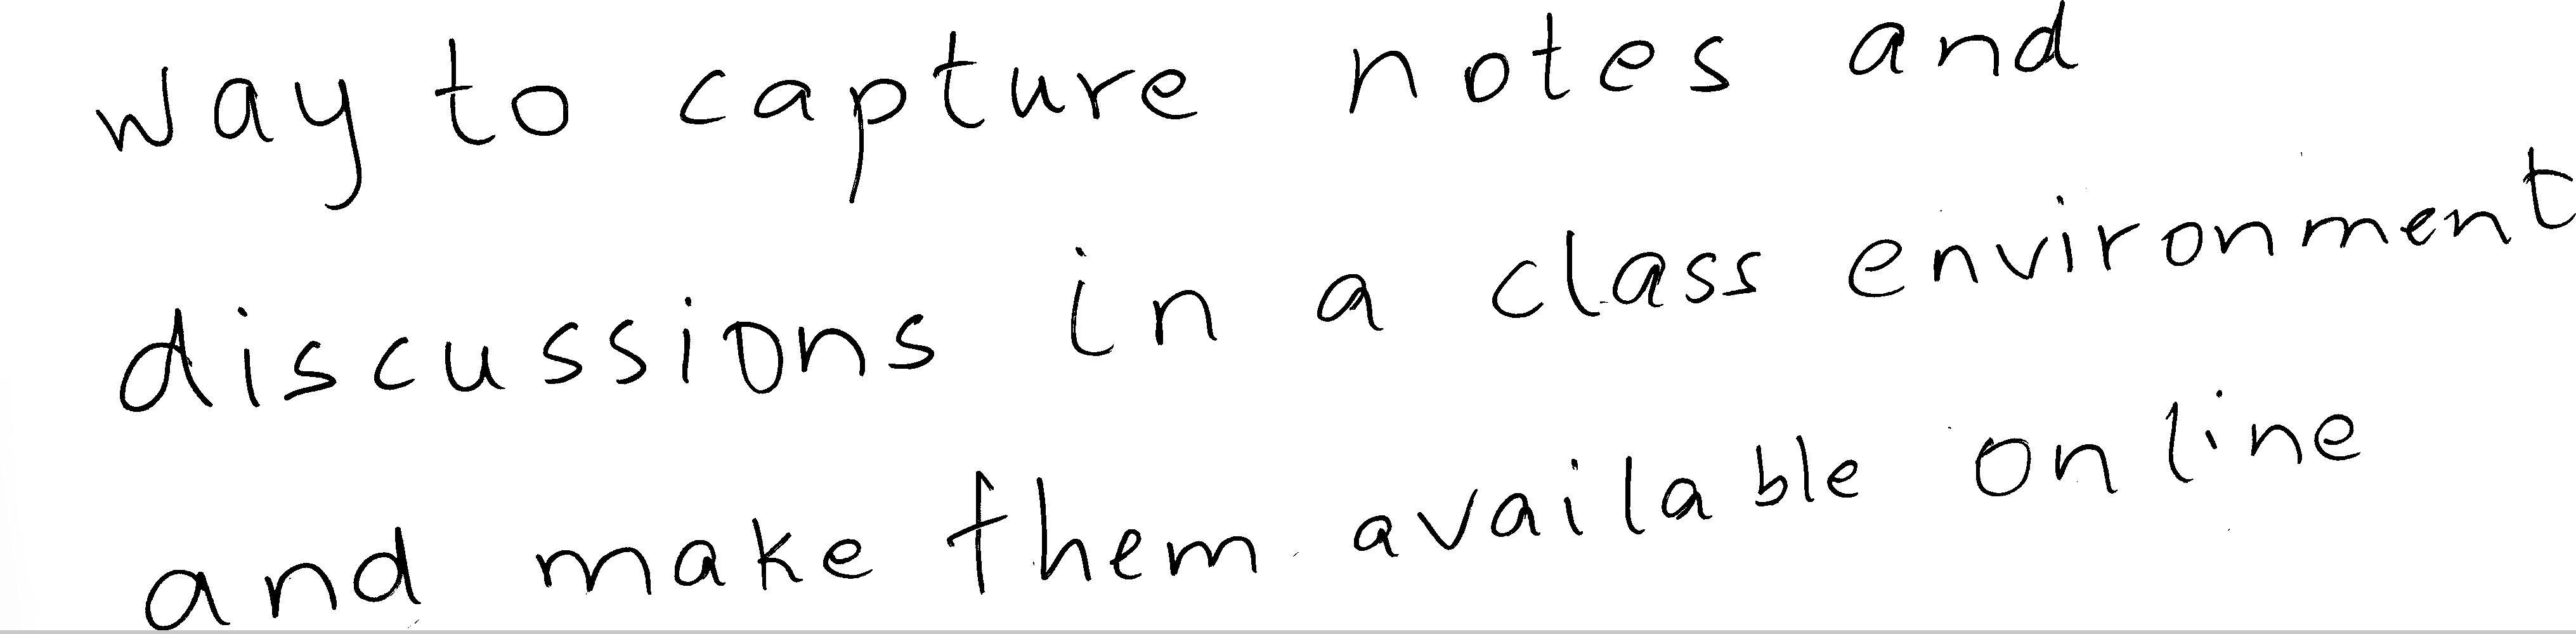 way to capture notes and
discussions in a class environment
and make them available online